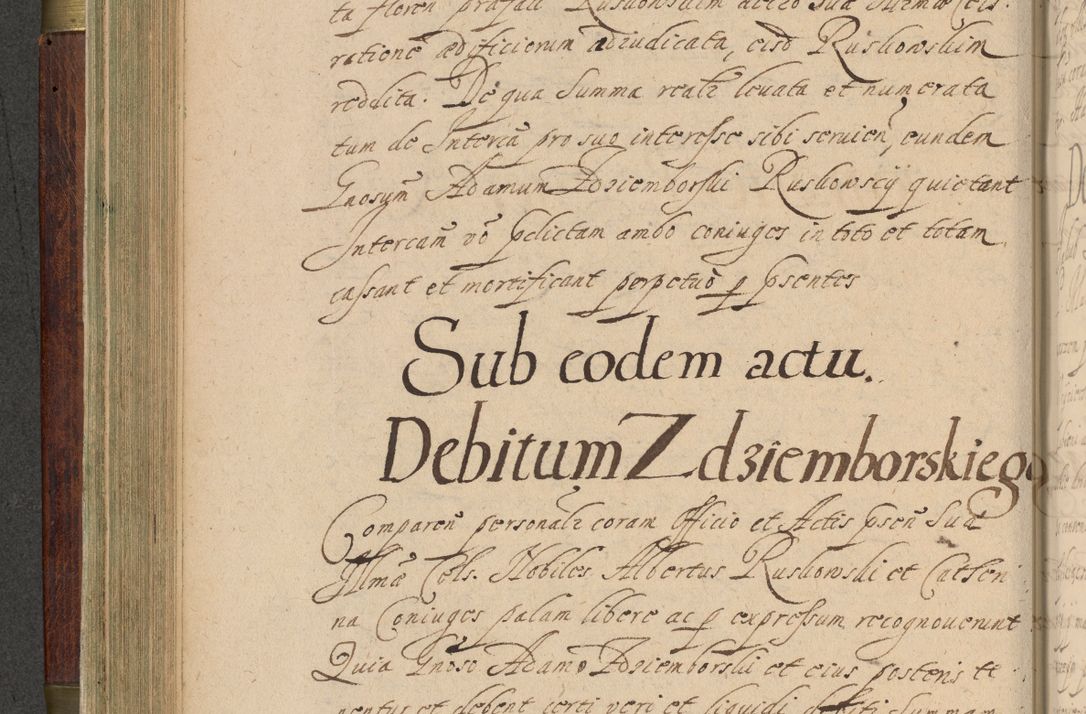 ta floren præfat Ruskowskim actio sua Illmæ Cels.
ratione ædificiorum adiudicata, eisd Ruskowskim
reddita. De qua Summa realr levata et numerata
tum de Intercā pro suo interesse sibi servien, eundem
Gnosum Adamum Zdziemborski Ruskowscÿ quietant
Intercam vō pdictam ambo coniuges in toto et totam
cassant et mortificant perpetuō p psentes
Sub eodem actu.
Debitum Zdziemborskiego
Comparen personalr coram Officio et Actis psen Suæ
Illmæ Cels. Nobiles Albertus Ruskowski et Catheri
na Coniuges palam libere ac p expressum recognoverunt
Quia Gnoso Adamo Zdziemborski et eius posteris te
nentur et debent certi veri et liquidi debiti summam